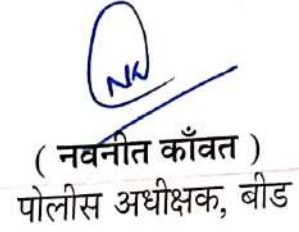 NK
( नवनीत काँवत )
पोलीस अधीक्षक, बीड